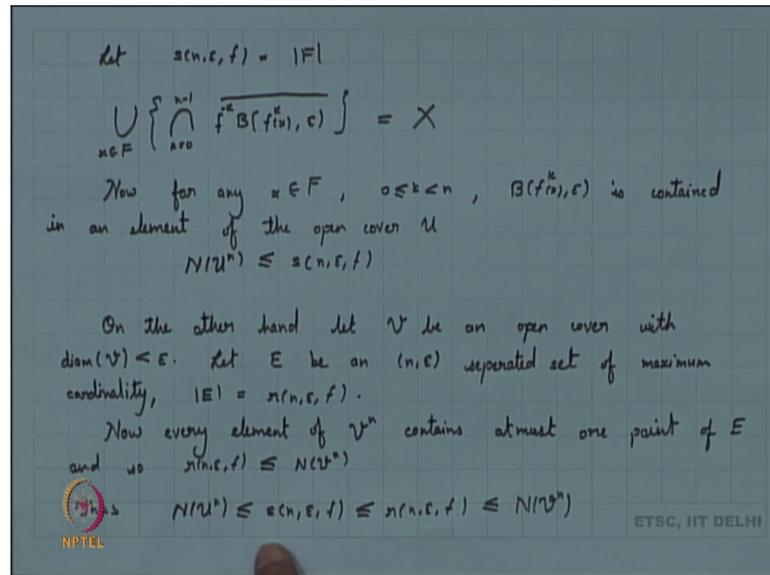 Let s(n,ε,f) = |F|
⋃_{x∈F} { ⋂_{k=0}^{n-1} \overline{f^{-k} B(f^k(x), ε)} } = X
Now for any x ∈ F, 0 ≤ k < n, B(f^k(x), ε) is contained
in an element of the open cover U
N(U^n) ≤ s(n,ε,f)
On the other hand let V be an open cover with
diam(V) < ε. Let E be an (n,ε) seperated set of maximum
cardinality, |E| = r(n,ε,f).
Now every element of V^n contains atmust one point of E
and so r(n,ε,f) ≤ N(V^n)
Thus N(U^n) ≤ s(n,ε,f) ≤ r(n,ε,f) ≤ N(V^n)
ETSC, IIT DELHI
NPTEL